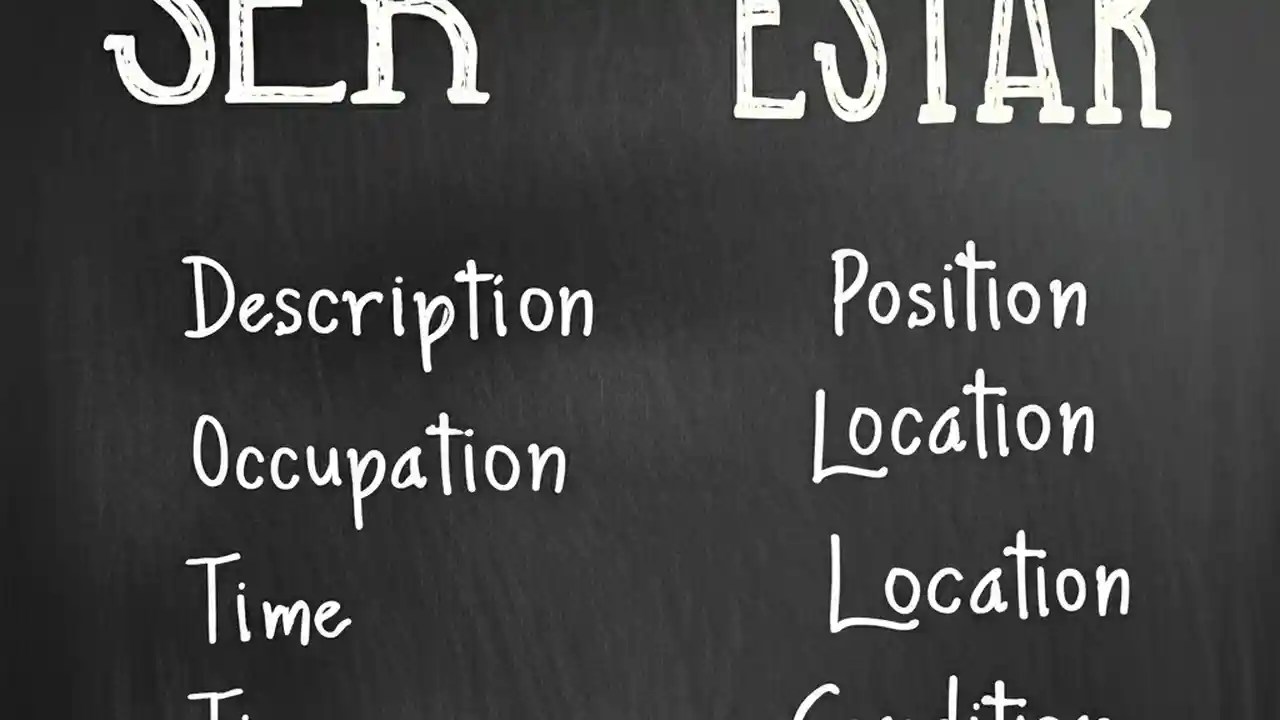 SER ESTAR
Description Position
Occupation Location
Time Location
Condition